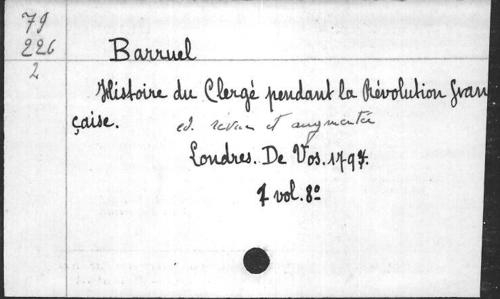 79
226
2
Barruel
Histoire du Clergé pendant la Révolution Fran
çaise. ed. revue et augmentée
Londres. De Vos. 1797.
1 vol. 8º